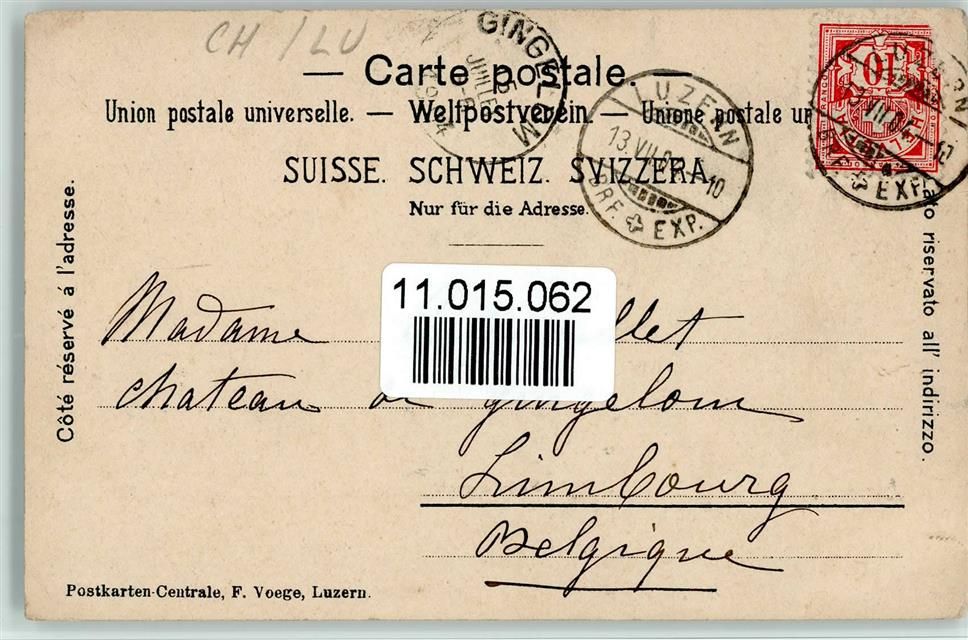 CH/LU
— Carte postale. —
Union postale universelle. — Weltpostverein. — Unione postale un
SUISSE. SCHWEIZ. SVIZZERA.
Nur für die Adresse.
GINGELOM
15
JUILLE
LUZERN
13.VII.0 -10
BRF. EXP.
10
HELVETIA
LUZERN
13.VII.04.-10
BRF. EXP.
Côté réservé à l'adresse.
Lato riservato all' indirizzo.
11.015.062
Madame llet
Chateau de Gingelom
Limbourg
Belgique
Postkarten-Centrale, F. Voege, Luzern.